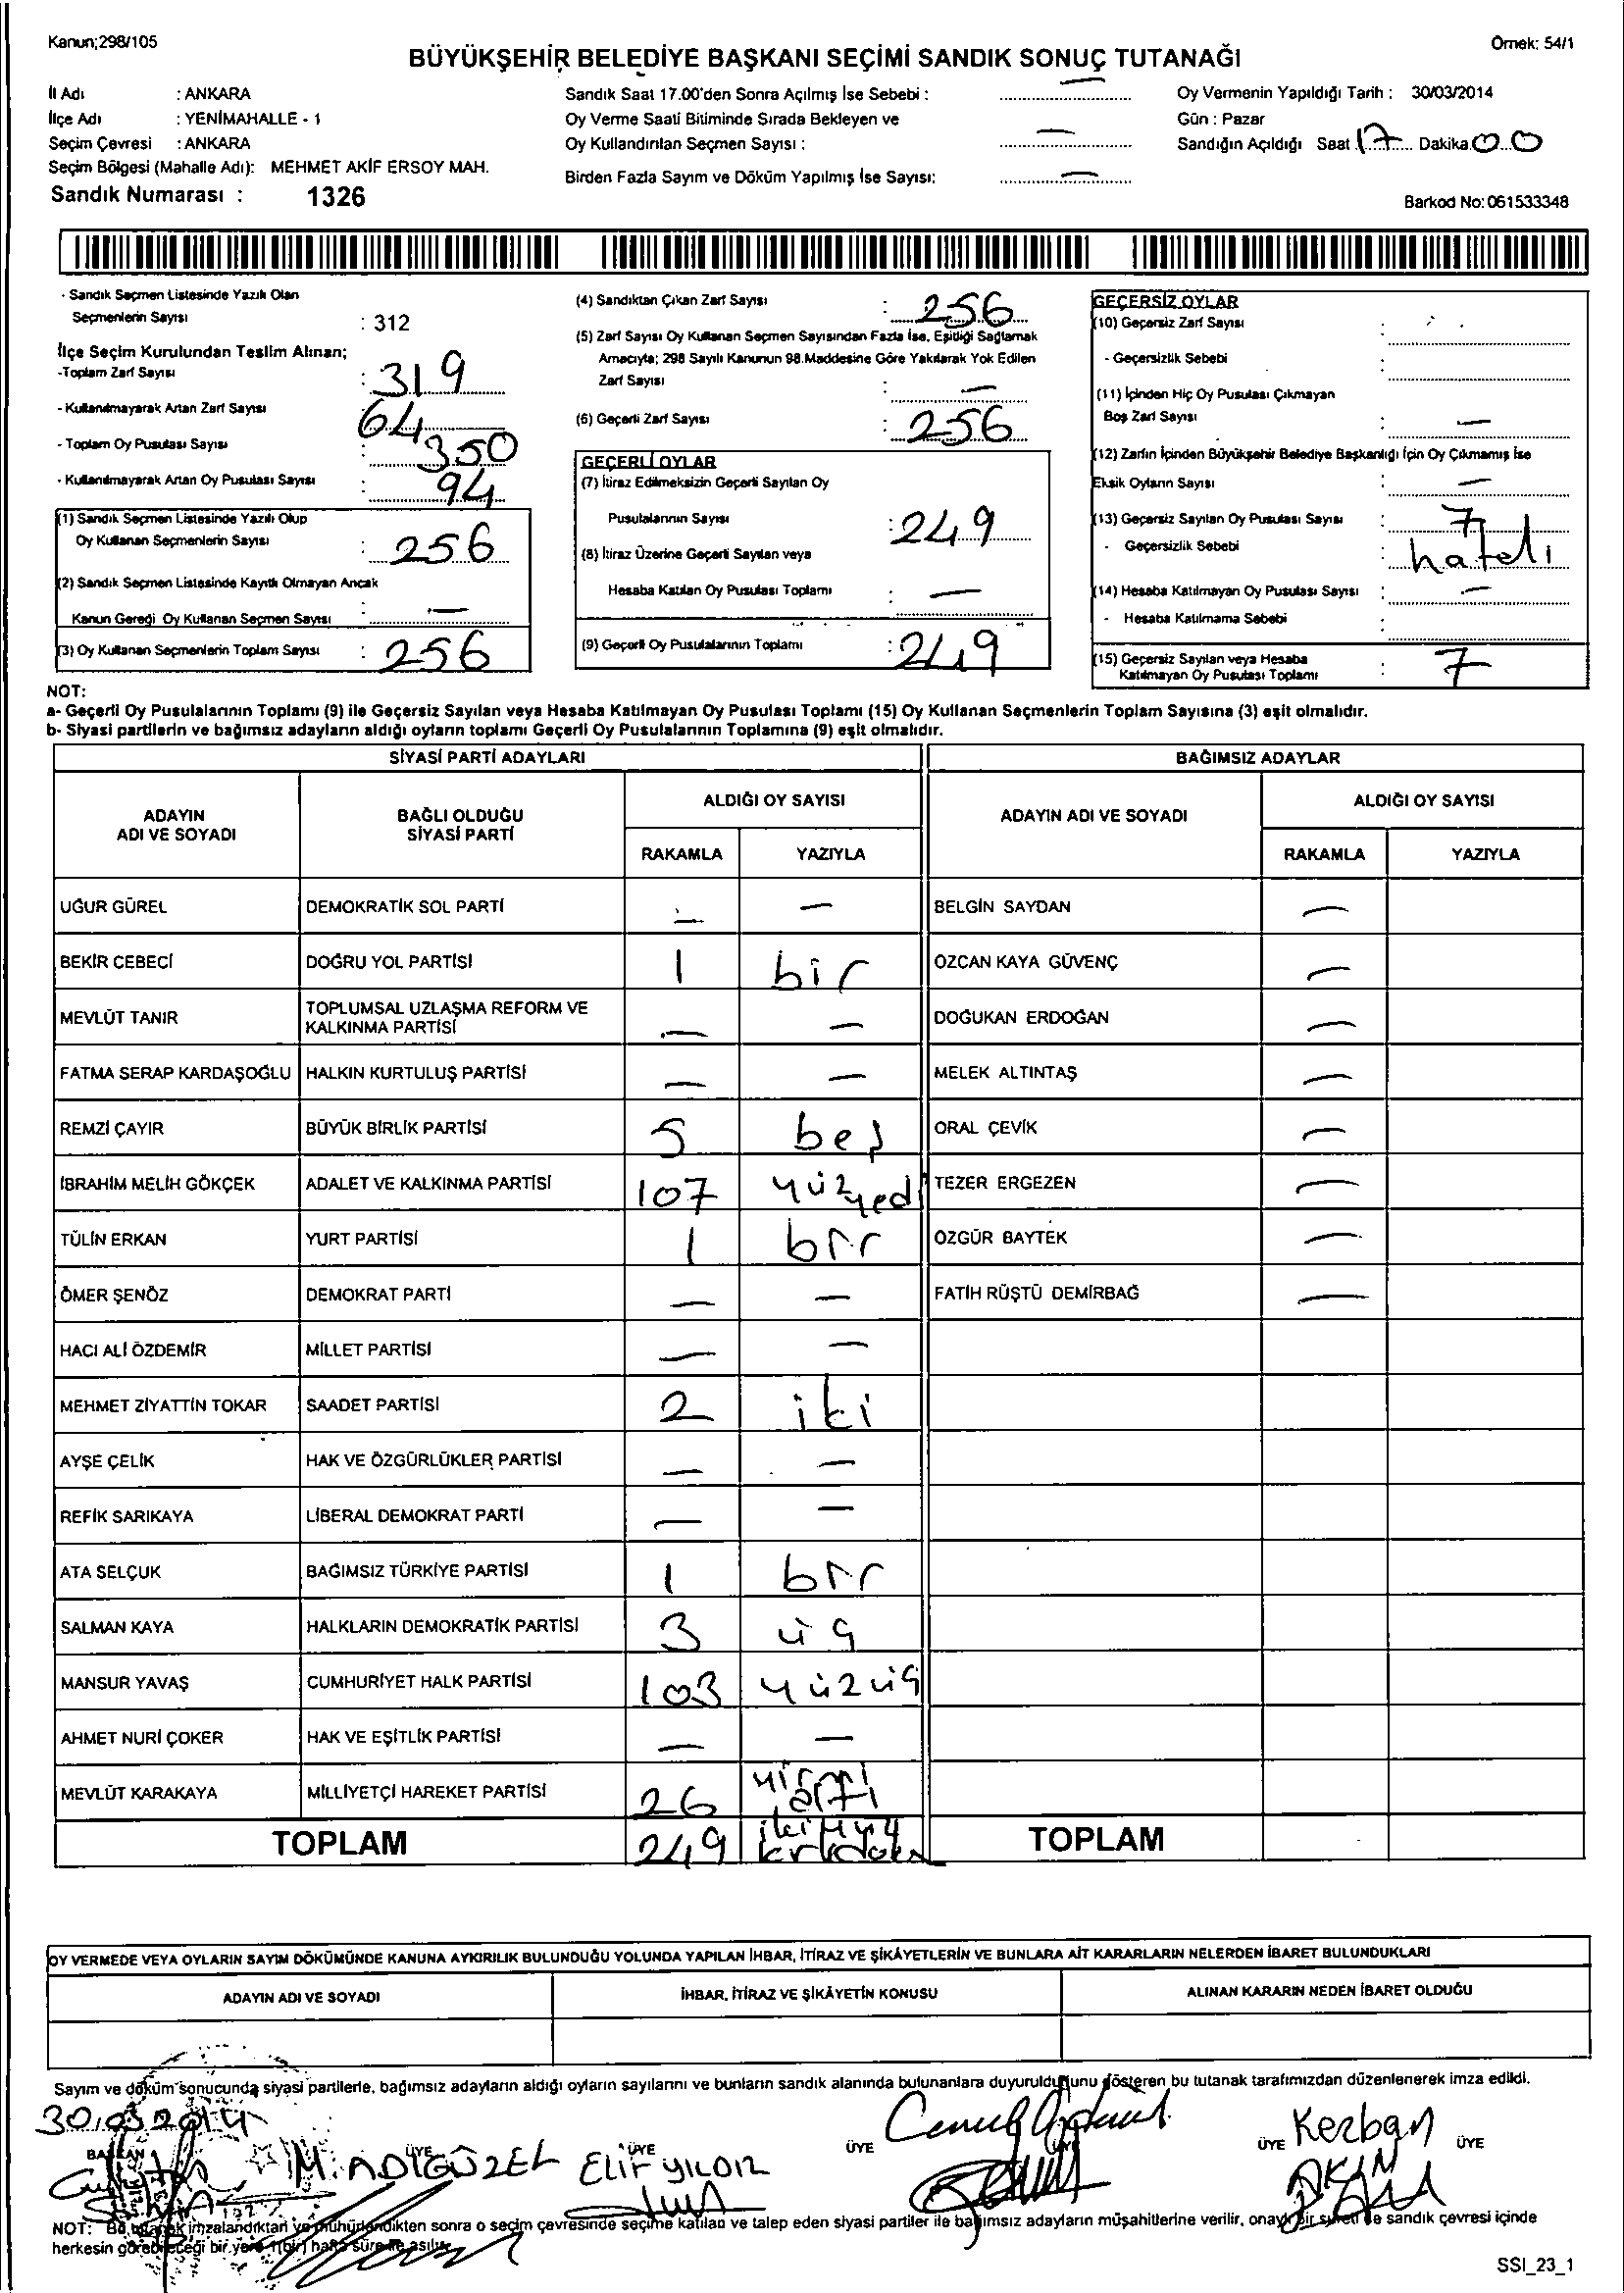 Kanun;298/105
Örnek: 54/1
BÜYÜKŞEHİR BELEDİYE BAŞKANI SEÇİMİ SANDIK SONUÇ TUTANAĞI
İl Adı : ANKARA
İlçe Adı : YENİMAHALLE - 1
Seçim Çevresi : ANKARA
Seçim Bölgesi (Mahalle Adı): MEHMET AKİF ERSOY MAH.
Sandık Numarası : 1326
Sandık Saat 17.00'den Sonra Açılmış İse Sebebi : —
Oy Verme Saati Bitiminde Sırada Bekleyen ve
Oy Kullandırılan Seçmen Sayısı : —
Birden Fazla Sayım ve Döküm Yapılmış İse Sayısı: —
Oy Vermenin Yapıldığı Tarih : 30/03/2014
Gün : Pazar
Sandığın Açıldığı Saat 17 Dakika 00
Barkod No: 061533348
- Sandık Seçmen Listesinde Yazılı Olan
Seçmenlerin Sayısı : 312
İlçe Seçim Kurulundan Teslim Alınan;
-Toplam Zarf Sayısı : 319
- Kullanılmayarak Artan Zarf Sayısı : 64
- Toplam Oy Pusulası Sayısı : 350
- Kullanılmayarak Artan Oy Pusulası Sayısı : 94
(1) Sandık Seçmen Listesinde Yazılı Olup
Oy Kullanan Seçmenlerin Sayısı : 256
(2) Sandık Seçmen Listesinde Kayıtlı Olmayan Ancak
Kanun Gereği Oy Kullanan Seçmen Sayısı : —
(3) Oy Kullanan Seçmenlerin Toplam Sayısı : 256
(4) Sandıktan Çıkan Zarf Sayısı : 256
(5) Zarf Sayısı Oy Kullanan Seçmen Sayısından Fazla İse, Eşitliği Sağlamak
Amacıyla; 298 Sayılı Kanunun 98.Maddesine Göre Yakılarak Yok Edilen
Zarf Sayısı : —
(6) Geçerli Zarf Sayısı : 256
GEÇERLİ OYLAR
(7) İtiraz Edilmeksizin Geçerli Sayılan Oy
Pusulalarının Sayısı : 249
(8) İtiraz Üzerine Geçerli Sayılan veya
Hesaba Katılan Oy Pusulası Toplamı : —
(9) Geçerli Oy Pusulalarının Toplamı : 249
GEÇERSİZ OYLAR
(10) Geçersiz Zarf Sayısı :
- Geçersizlik Sebebi :
(11) İçinden Hiç Oy Pusulası Çıkmayan
Boş Zarf Sayısı : —
(12) Zarfın İçinden Büyükşehir Belediye Başkanlığı İçin Oy Çıkmamış İse
Eksik Oyların Sayısı : —
(13) Geçersiz Sayılan Oy Pusulası Sayısı : 7
- Geçersizlik Sebebi : hatalı
(14) Hesaba Katılmayan Oy Pusulası Sayısı : —
- Hesaba Katılmama Sebebi :
(15) Geçersiz Sayılan veya Hesaba
Katılmayan Oy Pusulası Toplamı : 7
NOT:
a- Geçerli Oy Pusulalarının Toplamı (9) ile Geçersiz Sayılan veya Hesaba Katılmayan Oy Pusulası Toplamı (15) Oy Kullanan Seçmenlerin Toplam Sayısına (3) eşit olmalıdır.
b- Siyasi partilerin ve bağımsız adayların aldığı oyların toplamı Geçerli Oy Pusulalarının Toplamına (9) eşit olmalıdır.
SİYASİ PARTİ ADAYLARI BAĞIMSIZ ADAYLAR
ADAYIN ADI VE SOYADI BAĞLI OLDUĞU SİYASİ PARTİ ALDIĞI OY SAYISI ADAYIN ADI VE SOYADI ALDIĞI OY SAYISI
RAKAMLA YAZIYLA RAKAMLA YAZIYLA
UĞUR GÜREL DEMOKRATİK SOL PARTİ — — BELGİN SAYDAN —
BEKİR CEBECİ DOĞRU YOL PARTİSİ 1 bir ÖZCAN KAYA GÜVENÇ —
MEVLÜT TANIR TOPLUMSAL UZLAŞMA REFORM VE KALKINMA PARTİSİ — — DOĞUKAN ERDOĞAN —
FATMA SERAP KARDAŞOĞLU HALKIN KURTULUŞ PARTİSİ — — MELEK ALTINTAŞ —
REMZİ ÇAYIR BÜYÜK BİRLİK PARTİSİ 5 beş ORAL ÇEVİK —
İBRAHİM MELİH GÖKÇEK ADALET VE KALKINMA PARTİSİ 107 yüzyedi TEZER ERGEZEN —
TÜLİN ERKAN YURT PARTİSİ 1 bir ÖZGÜR BAYTEK —
ÖMER ŞENÖZ DEMOKRAT PARTİ — — FATİH RÜŞTÜ DEMİRBAĞ —
HACI ALİ ÖZDEMİR MİLLET PARTİSİ — —
MEHMET ZİYATTİN TOKAR SAADET PARTİSİ 2 iki
AYŞE ÇELİK HAK VE ÖZGÜRLÜKLER PARTİSİ — —
REFİK SARIKAYA LİBERAL DEMOKRAT PARTİ — —
ATA SELÇUK BAĞIMSIZ TÜRKİYE PARTİSİ 1 bir
SALMAN KAYA HALKLARIN DEMOKRATİK PARTİSİ 3 üç
MANSUR YAVAŞ CUMHURİYET HALK PARTİSİ 103 yüzüç
AHMET NURİ ÇOKER HAK VE EŞİTLİK PARTİSİ — —
MEVLÜT KARAKAYA MİLLİYETÇİ HAREKET PARTİSİ 26 yirmi altı
TOPLAM 249 TOPLAM
OY VERMEDE VEYA OYLARIN SAYIM DÖKÜMÜNDE KANUNA AYKIRILIK BULUNDUĞU YOLUNDA YAPILAN İHBAR, İTİRAZ VE ŞİKÂYETLERİN VE BUNLARA AİT KARARLARIN NELERDEN İBARET BULUNDUKLARI
ADAYIN ADI VE SOYADI İHBAR, İTİRAZ VE ŞİKÂYETİN KONUSU ALINAN KARARIN NEDEN İBARET OLDUĞU
Sayım ve döküm sonucunda siyasi partilerle, bağımsız adayların aldığı oyların sayılarını ve bunların sandık alanında bulunanlara duyurulduğunu gösteren bu tutanak tarafımızdan düzenlenerek imza edildi.
30.03.2014
BAŞKAN ÜYE ÜYE ÜYE ÜYE ÜYE ÜYE
M. ADIGÜZEL ELİF YILDIZ Kezban AKIN
NOT: Bu tutanak imzalandıktan ve mühürlendikten sonra o seçim çevresinde seçime katılan ve talep eden siyasi partiler ile bağımsız adayların müşahitlerine verilir, onaylı bir sureti de sandık çevresi içinde
herkesin görebileceği bir yere 1(bir) hafta süre ile asılır.
SSI_23_1